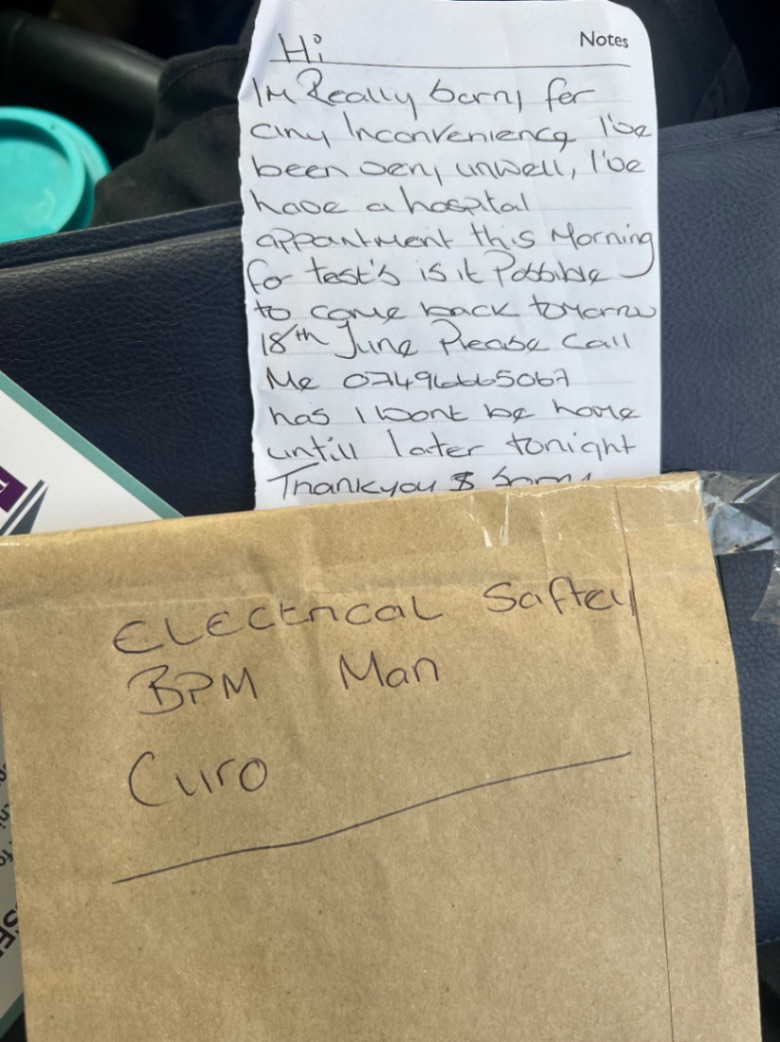 Hi
Notes
I'm Really Sorry for
any Inconvenience I've
been very unwell, I've
have a hospital
appointment this Morning
for test's is it Possible
to come back tomorrow
18th June Please Call
Me 07496665067
has I wont be home
untill later tonight
Thankyou & Sorry
ELECtrical Saftey
BPM Man
Curo